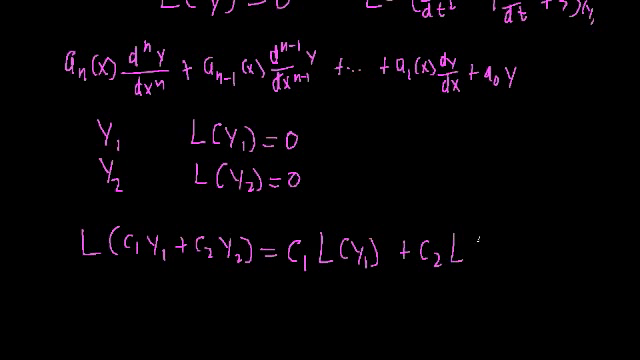 L(y) = 0 L = (d/dt² d/dt + 3)y,
aₙ(x) dⁿy/dxⁿ + aₙ₋₁(x) dⁿ⁻¹y/dxⁿ⁻¹ + ... + a₁(x) dy/dx + a₀ y
y₁ L(y₁) = 0
y₂ L(y₂) = 0
L(c₁y₁ + c₂y₂) = c₁ L(y₁) + c₂ L